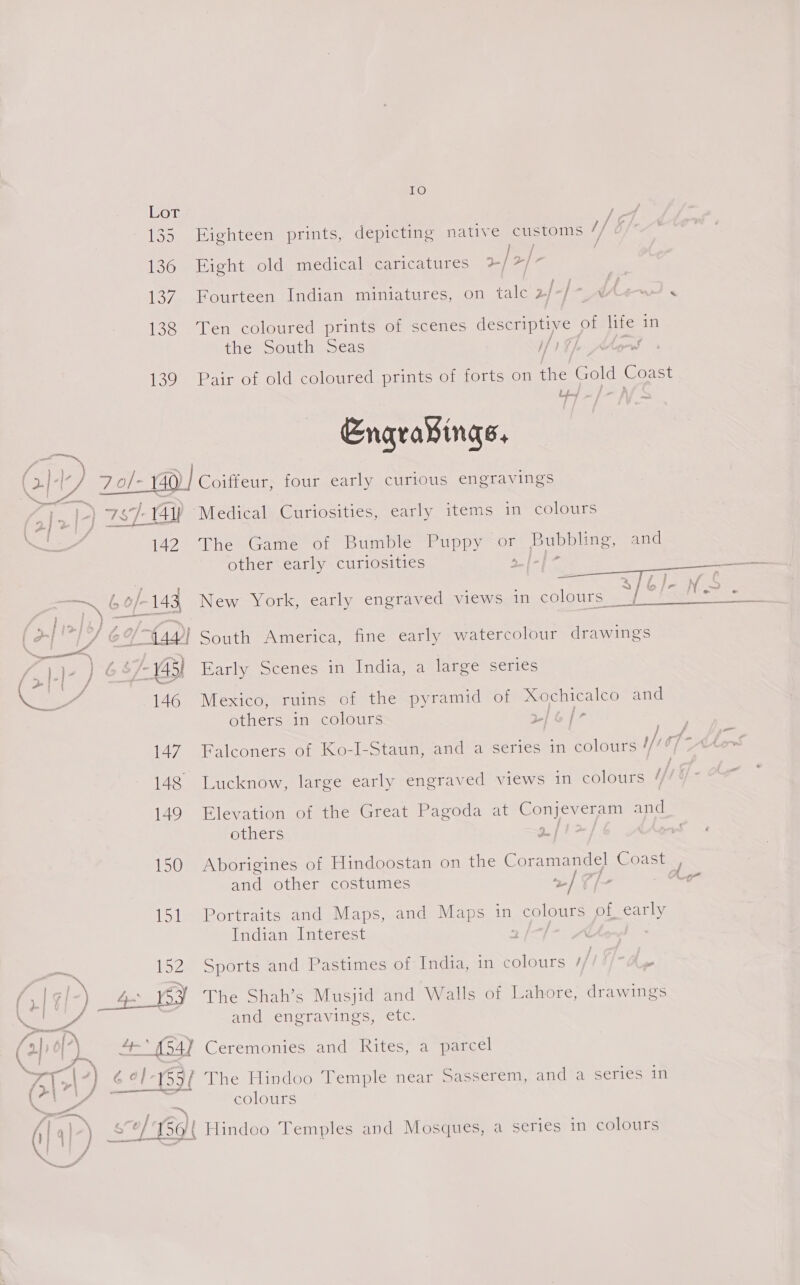 10
LOT
135 Eighteen prints, depicting native customs
136 Eight old medical caricatures 2/2/-
137 Fourteen Indian miniatures, on talc 2/-/-
138 Ten coloured prints of scenes descriptive of life in
the South Seas
139 Pair of old coloured prints of forts on the Gold Coast
Engravings.
70/- 140 Coiffeur, four early curious engravings
(2/2/-) 75/- 141 Medical Curiosities, early items in colours
142 The Game of Bumble Puppy or Bubbling, and
other early curiosities 2/-/-
60/- 143 New York, early engraved views in colours 3/6/- N.S.
60/- 144 South America, fine early watercolour drawings
145 Early Scenes in India, a large series
146 Mexico, ruins of the pyramid of Xochicalco and
others in colours 2/6/-
147 Falconers of Ko-I-Staun, and a series in colours
148 Lucknow, large early engraved views in colours
149 Elevation of the Great Pagoda at Conjeveram and
others 2/12/6
150 Aborigines of Hindoostan on the Coramandel Coast
and other costumes
151 Portraits and Maps, and Maps in colours of early
Indian Interest
152 Sports and Pastimes of India, in colours
153 The Shah's Musjid and Walls of Lahore, drawings
and engravings, etc.
154 Ceremonies and Rites, a parcel
60/- 155 The Hindoo Temple near Sasserem, and a series in
colours
156 Hindoo Temples and Mosques, a series in colours